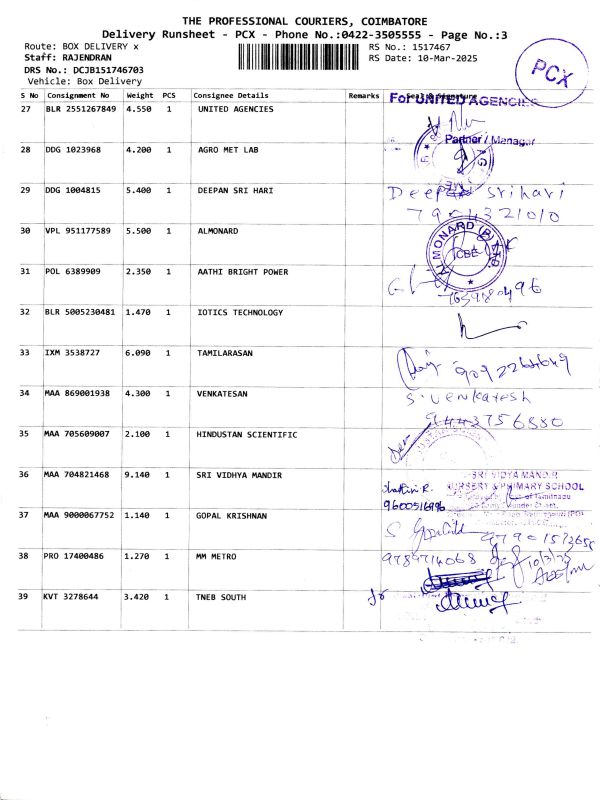 THE PROFESSIONAL COURIERS, COIMBATORE
Delivery Runsheet - PCX - Phone No.:0422-3505555 - Page No.:3
Route: BOX DELIVERY x
RS No.: 1517467
Staff: RAJENDRAN
RS Date: 10-Mar-2025
DRS No.: DCJB151746703
Vehicle: Box Delivery
PCX
S No Consignment No Weight PCS Consignee Details Remarks Seal & Signature
27 BLR 2551267849 4.550 1 UNITED AGENCIES For UNITED AGENCIES
Partner / Manager
28 DDG 1023968 4.200 1 AGRO MET LAB
29 DDG 1004815 5.400 1 DEEPAN SRI HARI Deepan Srihari
7904321010
30 VPL 951177589 5.500 1 ALMONARD ALMONARD (P) LTD. CBE
31 POL 6389909 2.350 1 AATHI BRIGHT POWER
32 BLR 5005230481 1.470 1 IOTICS TECHNOLOGY
33 IXM 3538727 6.090 1 TAMILARASAN
34 MAA 869001938 4.300 1 VENKATESAN S. Venkatesh
9443756880
35 MAA 705609007 2.100 1 HINDUSTAN SCIENTIFIC
36 MAA 704821468 9.140 1 SRI VIDHYA MANDIR SRI VIDYA MANDIR
NURSERY & PRIMARY SCHOOL
9600516996
37 MAA 9000067752 1.140 1 GOPAL KRISHNAN
38 PRO 17400486 1.270 1 MM METRO 9789714068
10/3/25
39 KVT 3278644 3.420 1 TNEB SOUTH